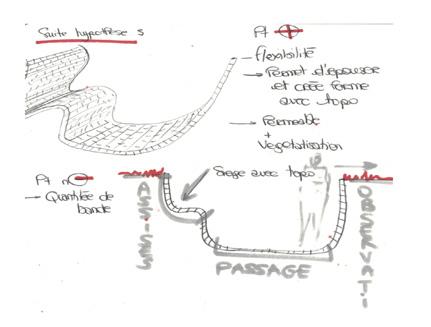 Suite hypothèse s
Pt +
- flexibilité
→ Permet d'épouser
et créé forme
avec topo
→ Permeable
+
Vegetalisation
Pt n -
→ Quantitée de
bande
Siege avec topo
ASSISES
PASSAGE
OBSERVATI